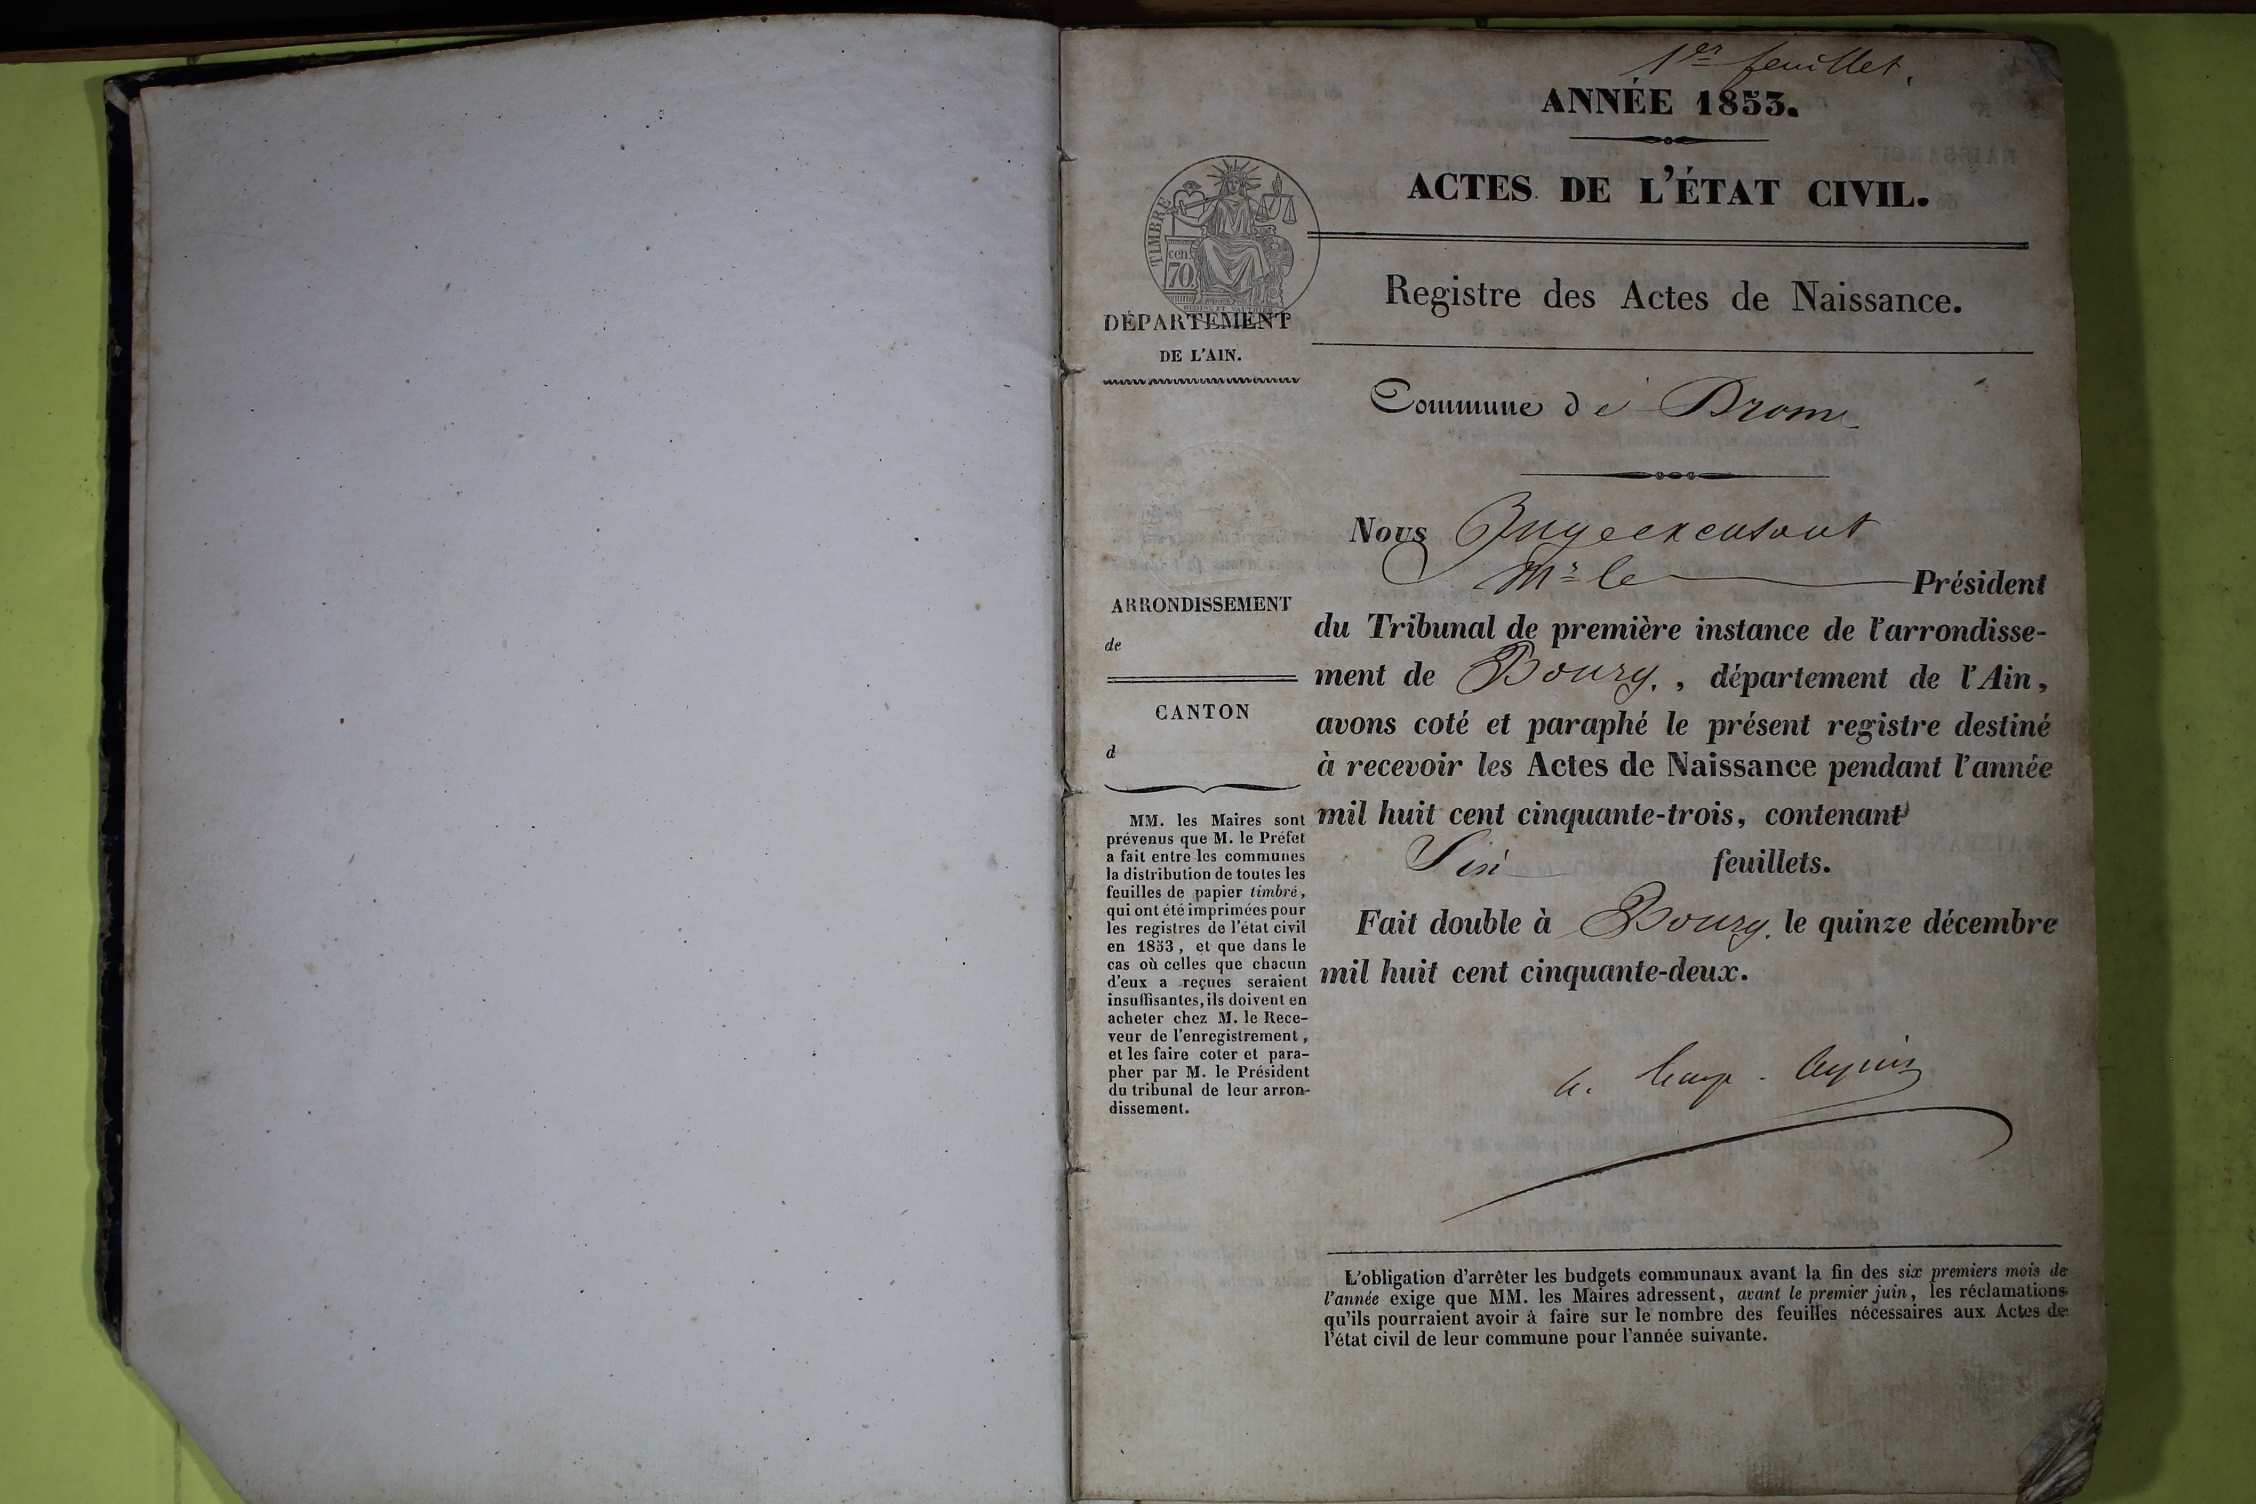 1er feuillet.
ANNÉE 1853.
ACTES DE L'ÉTAT CIVIL.
TIMBRE
cen.
70
Registre des Actes de Naissance.
DÉPARTEMENT
DE L'AIN.
Commune de Drom
Nous Juge excusant
Mr le Président
ARRONDISSEMENT
de
du Tribunal de première instance de l'arrondisse-
ment de Bourg, département de l'Ain,
CANTON
d
avons coté et paraphé le présent registre destiné
à recevoir les Actes de Naissance pendant l'année
mil huit cent cinquante-trois, contenant
feuillets.
Fait double à Bourg, le quinze décembre
mil huit cent cinquante-deux.
MM. les Maires sont
prévenus que M. le Préfet
a fait entre les communes
la distribution de toutes les
feuilles de papier timbré,
qui ont été imprimées pour
les registres de l'état civil
en 1853, et que dans le
cas où celles que chacun
d'eux a reçues seraient
insuffisantes, ils doivent en
acheter chez M. le Rece-
veur de l'enregistrement,
et les faire coter et para-
pher par M. le Président
du tribunal de leur arron-
dissement.
L'obligation d'arrêter les budgets communaux avant la fin des six premiers mois de
l'année exige que MM. les Maires adressent, avant le premier juin, les réclamations
qu'ils pourraient avoir à faire sur le nombre des feuilles nécessaires aux Actes de
l'état civil de leur commune pour l'année suivante.